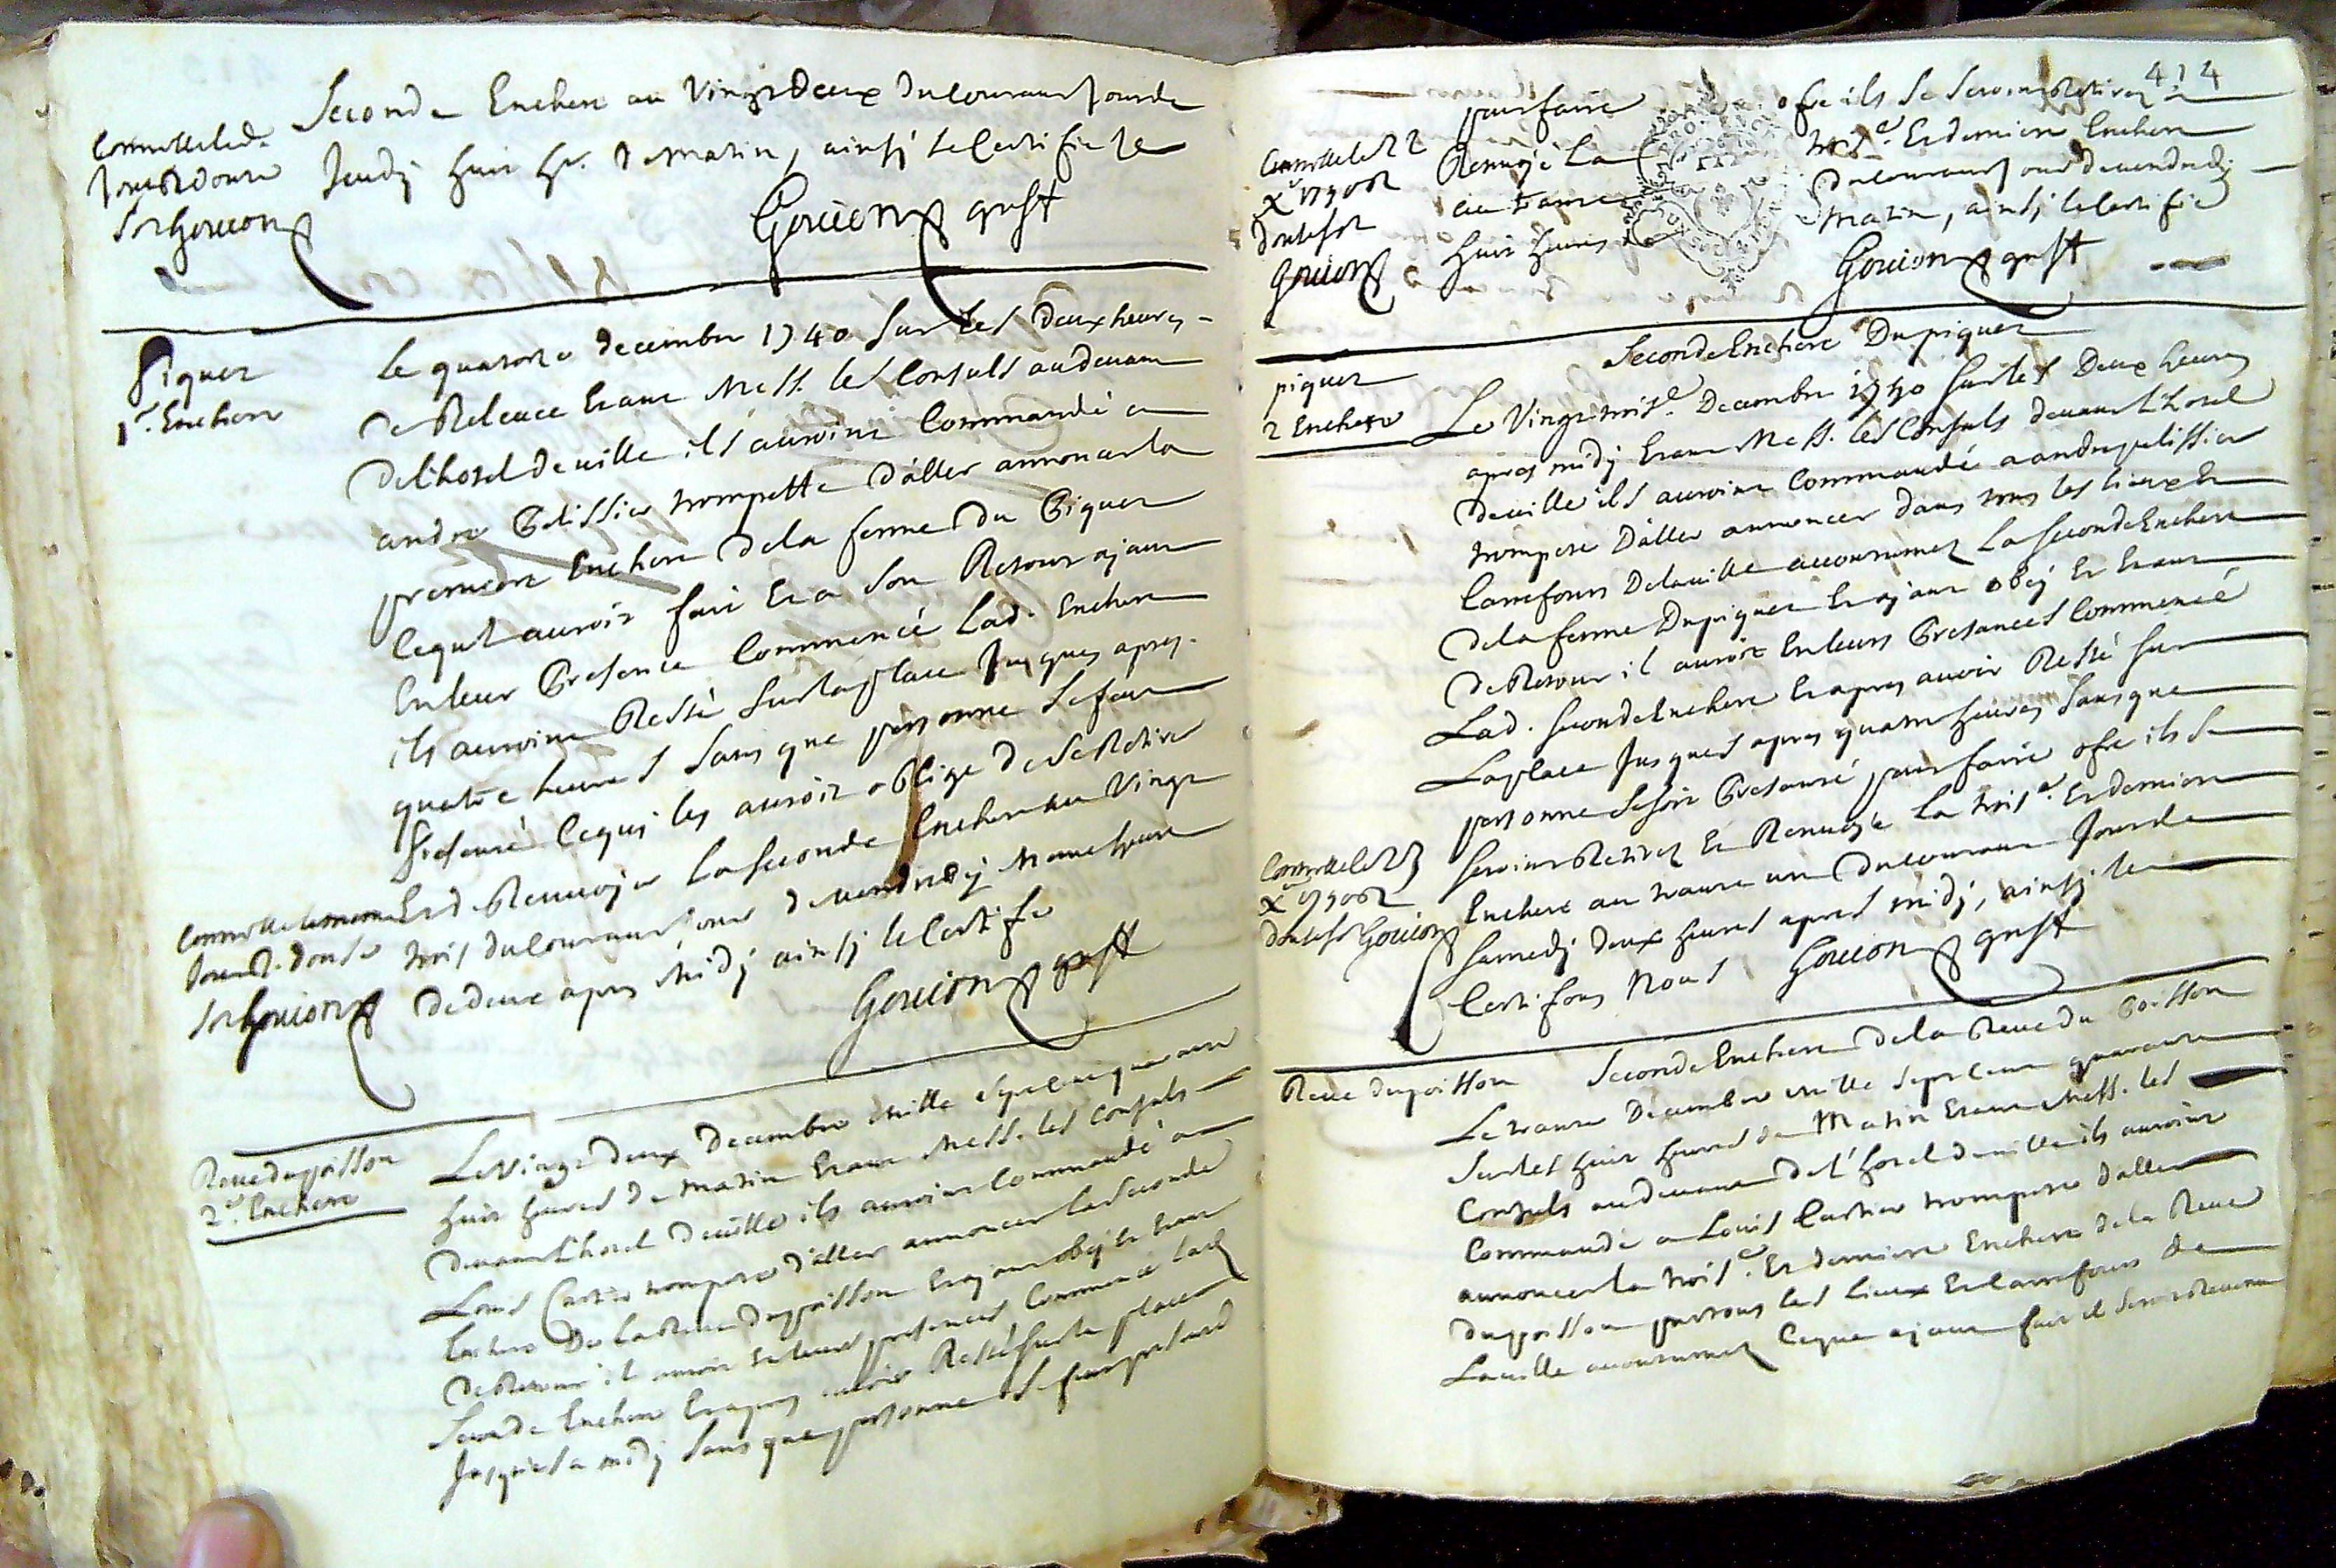 Seconde Enchere au Vingt deux du courant Jour de
Jeudj huit hr. de matin, ainsj le Certifie Je
Gouion gref
Controllé led.
Jour douze
sols Gouion
Piquet
1re. Enchere
Le quatorze decembre 1740 sur les deux heures
de Relevee Etant Mess. les Consuls au devant
de l'hotel de ville ils auroint Commandé a
andre Pelissier trompette d'aller annoncer la
premiere Enchere de la ferme du Piquet
Ce quil auroit fait Et a son Retour ajant
En leur Presence Commencé Lad. Enchere
ils auroint Resté sur la place Jusques apres
quatre heures sans que personne se fut
Presenté Ce quj les auroit obligé de se Retirer
Et de Renvoyer la seconde Enchere au Vingt
trois du Courant Jour de vendredj
de deux apres Midj ainsj le Certifie
Gouion gref
Controllé le meme
Jour
sols Gouion
Reve du poisson
2e. Enchere
Le Vingt deux Decembre mille sept cens quarante
huit heures de matin Etant Mess. les Consuls
devant L'hotel de ville ils auroint Commandé a
Louis Cartier trompete d'aller annoncer la seconde
Enchere De la Reve du poisson Et ajant obej Et Etant
de Retour il auroit En leurs presences Commencé Lad.
Seconde Enchere Et apres avoir Resté sur la place
Jusques a midj sans que personne se fut presenté
414
pour faire ofre ils se seroint Retirez Et
Renvojé la trois.e Et derniere Enchere
au trante du courant Jour de vendredj
huit heures Matin, ainsj le Certifie
Gouion gref
Controllé le 22
Xe 1740 R
douze sols
Gouion
Seconde Enchere Du piquet
piquet
2 Enchere
Le Vingt trois.e Decembre 1740 sur les Deux heures
apres midj Etant Mess. les Consuls devant L'hotel
de ville ils auroint Commandé a andre pelissier
trompete D'aller annoncer dans tous les lieux Et
Carrefours De la ville accoutumez La seconde Enchere
de la ferme Du piquet Et ajant obej Et Etant
de Retour il auroit En leurs Presances Commencé
Lad. seconde Enchere Et apres avoir Resté sur
La place Jusques apres quatre heures sans que
personne se soit Presanté pour faire ofre ils se
seroint Retirez Et Renvojé la trois.e Et derniere
Enchere au trante un du courant Jour de
samedj deux heures apres midj, ainsj le
Certifions Nous Gouion gref
Controllé le 23
Xe 1740 R
douze sols Gouion
Reve du poisson
Seconde Enchere de la Reve du Poisson
Le trante Decembre mille sept cens quarante
sur les huit heures de Matin Etant Mess. les
Consuls au devant de l'hotel de ville ils auroint
Commandé a Louis Cartier trompete d'aller
annoncer la trois.e Et derniere Enchere de la Reve
du poisson par tous les lieux Et Carrefours de
La ville accoutumez Ce que ajant fait il seroit Revenu